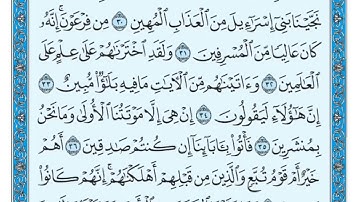 نَجَّيْنَا بَنِىٓ إِسْرَٰٓءِيلَ مِنَ ٱلْعَذَابِ ٱلْمُهِينِ ٣٠ مِن فِرْعَوْنَ ۚ إِنَّهُۥ
كَانَ عَالِيًا مِّنَ ٱلْمُسْرِفِينَ ٣١ وَلَقَدِ ٱخْتَرْنَٰهُمْ عَلَىٰ عِلْمٍ عَلَى
ٱلْعَٰلَمِينَ ٣٢ وَءَاتَيْنَٰهُم مِّنَ ٱلْءَايَٰتِ مَا فِيهِ بَلَٰٓؤٌا۟ مُّبِينٌ ٣٣
إِنَّ هَٰٓؤُلَآءِ لَيَقُولُونَ ٣٤ إِنْ هِىَ إِلَّا مَوْتَتُنَا ٱلْأُولَىٰ وَمَا نَحْنُ
بِمُنشَرِينَ ٣٥ فَأْتُوا۟ بِـَٔابَآئِنَآ إِن كُنتُمْ صَٰدِقِينَ ٣٦ أَهُمْ
خَيْرٌ أَمْ قَوْمُ تُبَّعٍ وَٱلَّذِينَ مِن قَبْلِهِمْ ۚ أَهْلَكْنَٰهُمْ ۖ إِنَّهُمْ كَانُوا۟